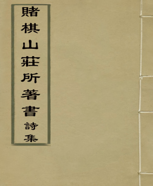 賭棋山莊所著書詩集